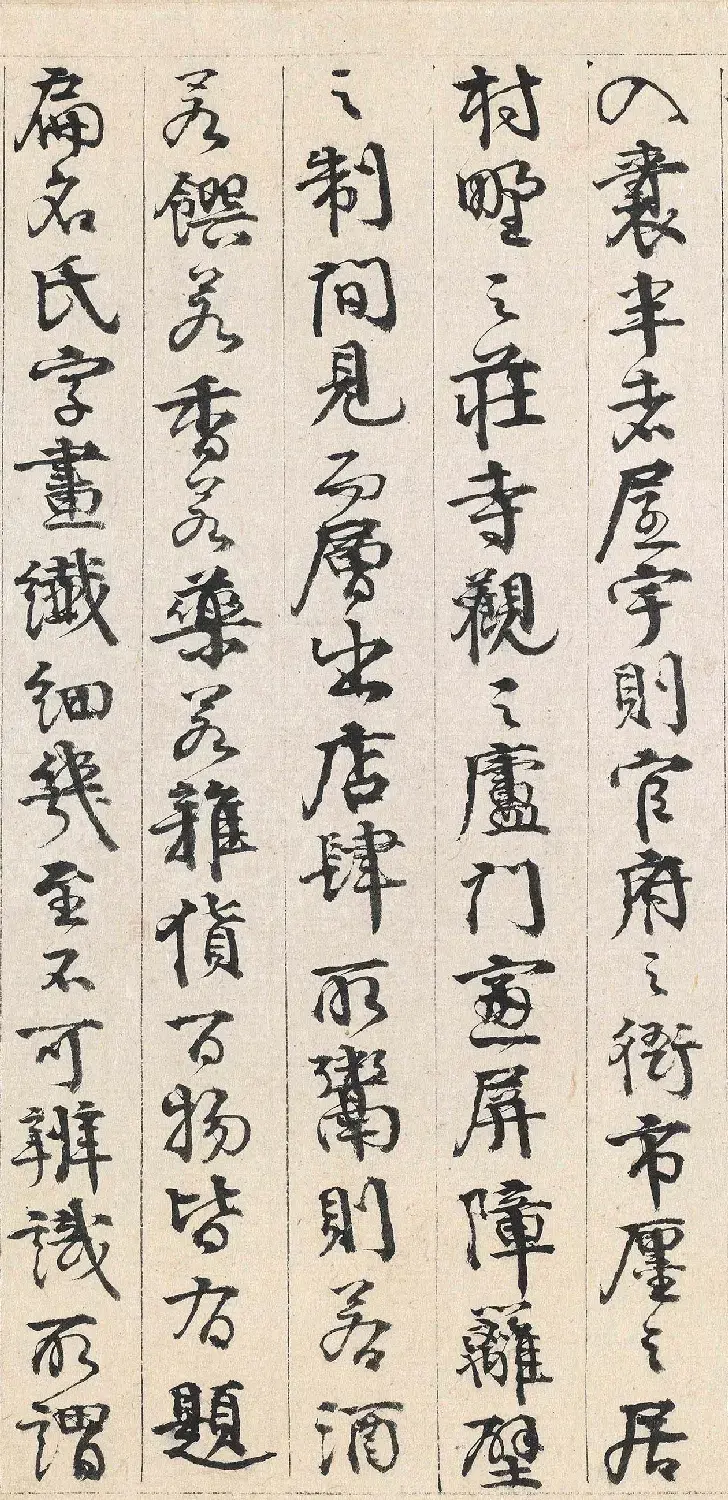 入囊半者屋宇則官府之衙市廛之居
村野之莊寺觀之廬門窗屏障籬壁
之制間見而層出店肆所鬻則若酒
若饌若香若藥若雜貨百物皆有題
扁名氏字畫纖細幾至不可辨識所謂